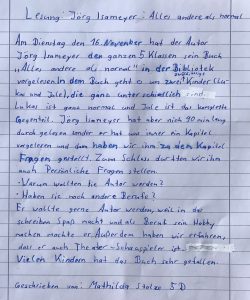 Lesung Jörg Isameyer: Alles andere als normal
Am Dienstag den 16. November hat der Autor
Jörg Isameyer den ganzen 5 Klassen sein Buch
„Alles andere als normal" in der Bibliotek
vorgelesen. In dem Buch geht es um zwei Kinder (Lu-
kas und Jule), die ganz unterschiedlich sind.
Lukas ist ganz normal und Jule ist das komplette
Gegenteil. Jörg Isameyer hat aber nicht 90 min lang
durch gelesen sonder er hat uns immer ein Kapitel
vorgelesen und dann haben wir ihm zu dem Kapitel
Fragen gestellt. Zum Schluss durften wir ihm
auch Persönliche Fragen stellen.
-Warum wollten Sie Autor werden?
-Haben sie noch andere Berufe?
Er wollte gerne Autor werden, weil im das
schreiben Spaß macht und als Beruf sein Hobby
machen möchte er. Außerdem haben wir erfahren,
dass er auch Theater-Schauspieler ist.
Vielen Kindern hat das Buch sehr gefallen.
Geschrieben von: Mathilda Stolze 5D